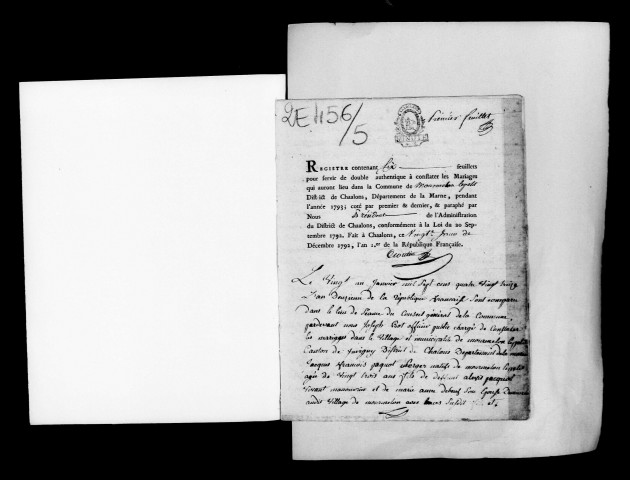 2E 456/5
Premier feuillet
REGISTRE contenant six feuillets
pour servir de double authentique à constater les Mariages
qui auront lieu dans la Commune de Mourmelon lepetit
District de Chaalons, Département de la Marne, pendant
l'année 1793; coté par premier & dernier, & paraphé par
Nous de l'Administration
du District de Chaalons, conformément à la Loi du 20 Sep-
tembre 1792. Fait à Chaalons, ce vingt de
Décembre 1792, l'an 1.er de la République Française.
Le Vingt un Janvier mil Sept cens quatre Vingt treize
L'an Deuxieme de la République francaise Sont comparu
dans le lieu de Séance du Conseil général de la Commune
pardevant nous Joseph officier public chargé de Constater
les mariages dans le Village et municipalité de mourmelon lepetit
Canton de Juvigny District de Chalons Département de la marne
Jacques francois paquot Berger natif de mourmelon lepetit
agée de Vingt trois ans fils de deffunt
Vivant manouvrier et de marie anne Son Epouse
audit Village de mourmelon avec